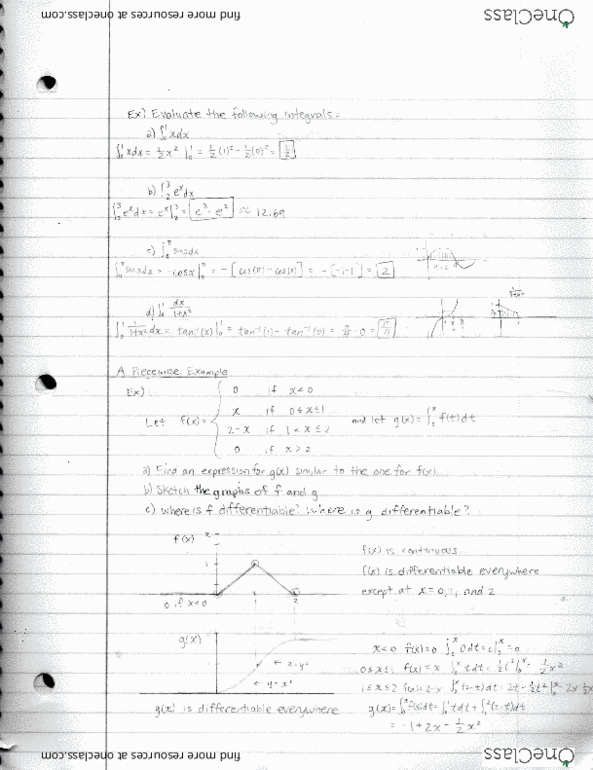 find more resources at oneclass.com
OneClass
Ex) Evaluate the following integrals:
a) ∫₀¹ xdx
∫₀¹ xdx = ½x² |₀¹ = ½(1)² - ½(0)² = ½
b) ∫₂³ eˣdx
∫₂³ eˣdx = eˣ|₂³ = e³ - e² ≈ 12.69
c) ∫₀^π sinxdx
∫₀^π sinxdx = -cosx|₀^π = -[cos(π) - cos(0)] = -[-1-1] = 2
d) ∫₀¹ dx/1+x²
∫₀¹ 1/1+x² dx = tan⁻¹(x)|₀¹ = tan⁻¹(1) - tan⁻¹(0) = π/4 - 0 = π/4
A Piecewise Example
Ex)
Let f(x) = { 0 if x<0
x if 0≤x≤1
2-x if 1<x≤2
0 if x>2
and let g(x) = ∫₀ˣ f(t)dt
a) Find an expression for g(x) similar to the one for f(x).
b) Sketch the graphs of f and g
c) where is f differentiable? Where is g differentiable?
f(x)
0 if x<0
1
2
f(x) is continuous
f(x) is differentiable everywhere
except at x=0,1, and 2
g(x)
g(x) is differentiable everywhere
x<0 f(x)=0 ∫₀ˣ 0dt = 0
0≤x≤1 f(x)=x ∫₀ˣ tdt = ½t²|₀ˣ = ½x²
1≤x≤2 f(x)=2-x
= -1+2x-½x²
find more resources at oneclass.com
OneClass